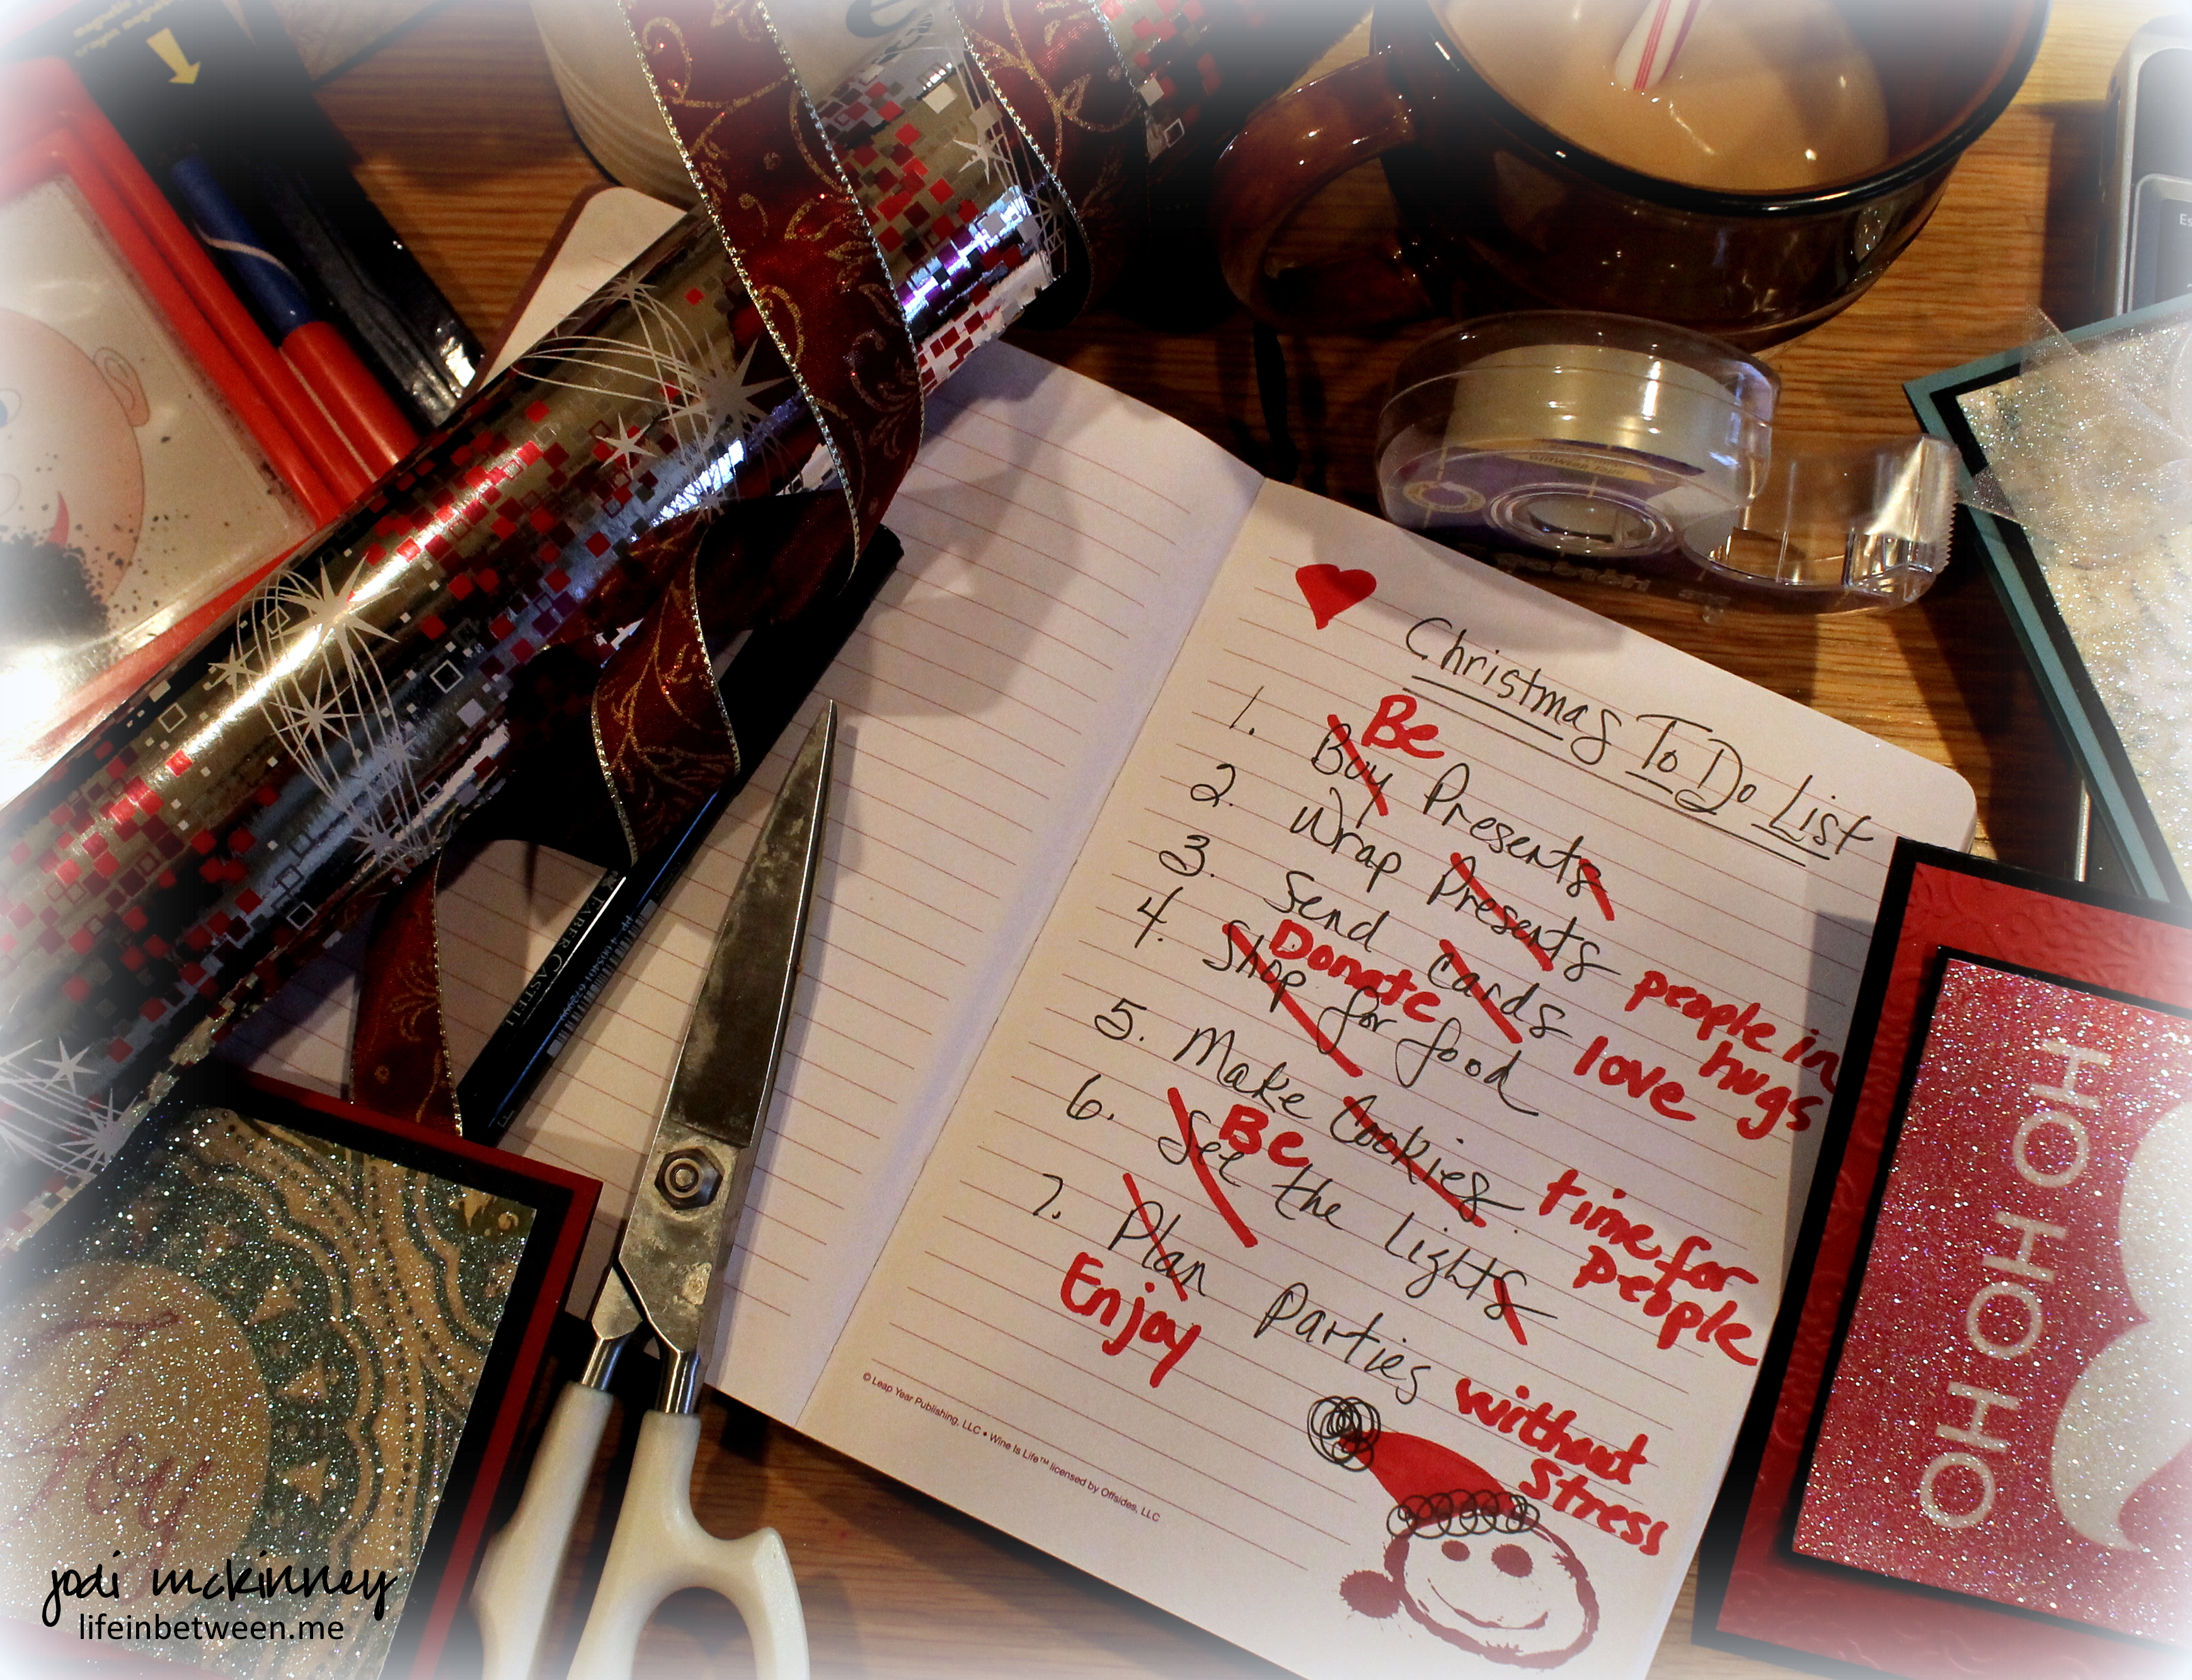 Christmas To Do List
1. Buy Be Presents
2. Wrap Presents people in hugs
3. Send cards love
4. Shop Donate for food
5. Make Cookies time for people
6. Set Be the Lights
7. Plan Enjoy Parties without Stress
© Leap Year Publishing, LLC • Wine Is Life™ licensed by Offsides, LLC
FABER CASTELL
HO HO HO HO
Joy
jodi mckinney
lifeinbetween.me